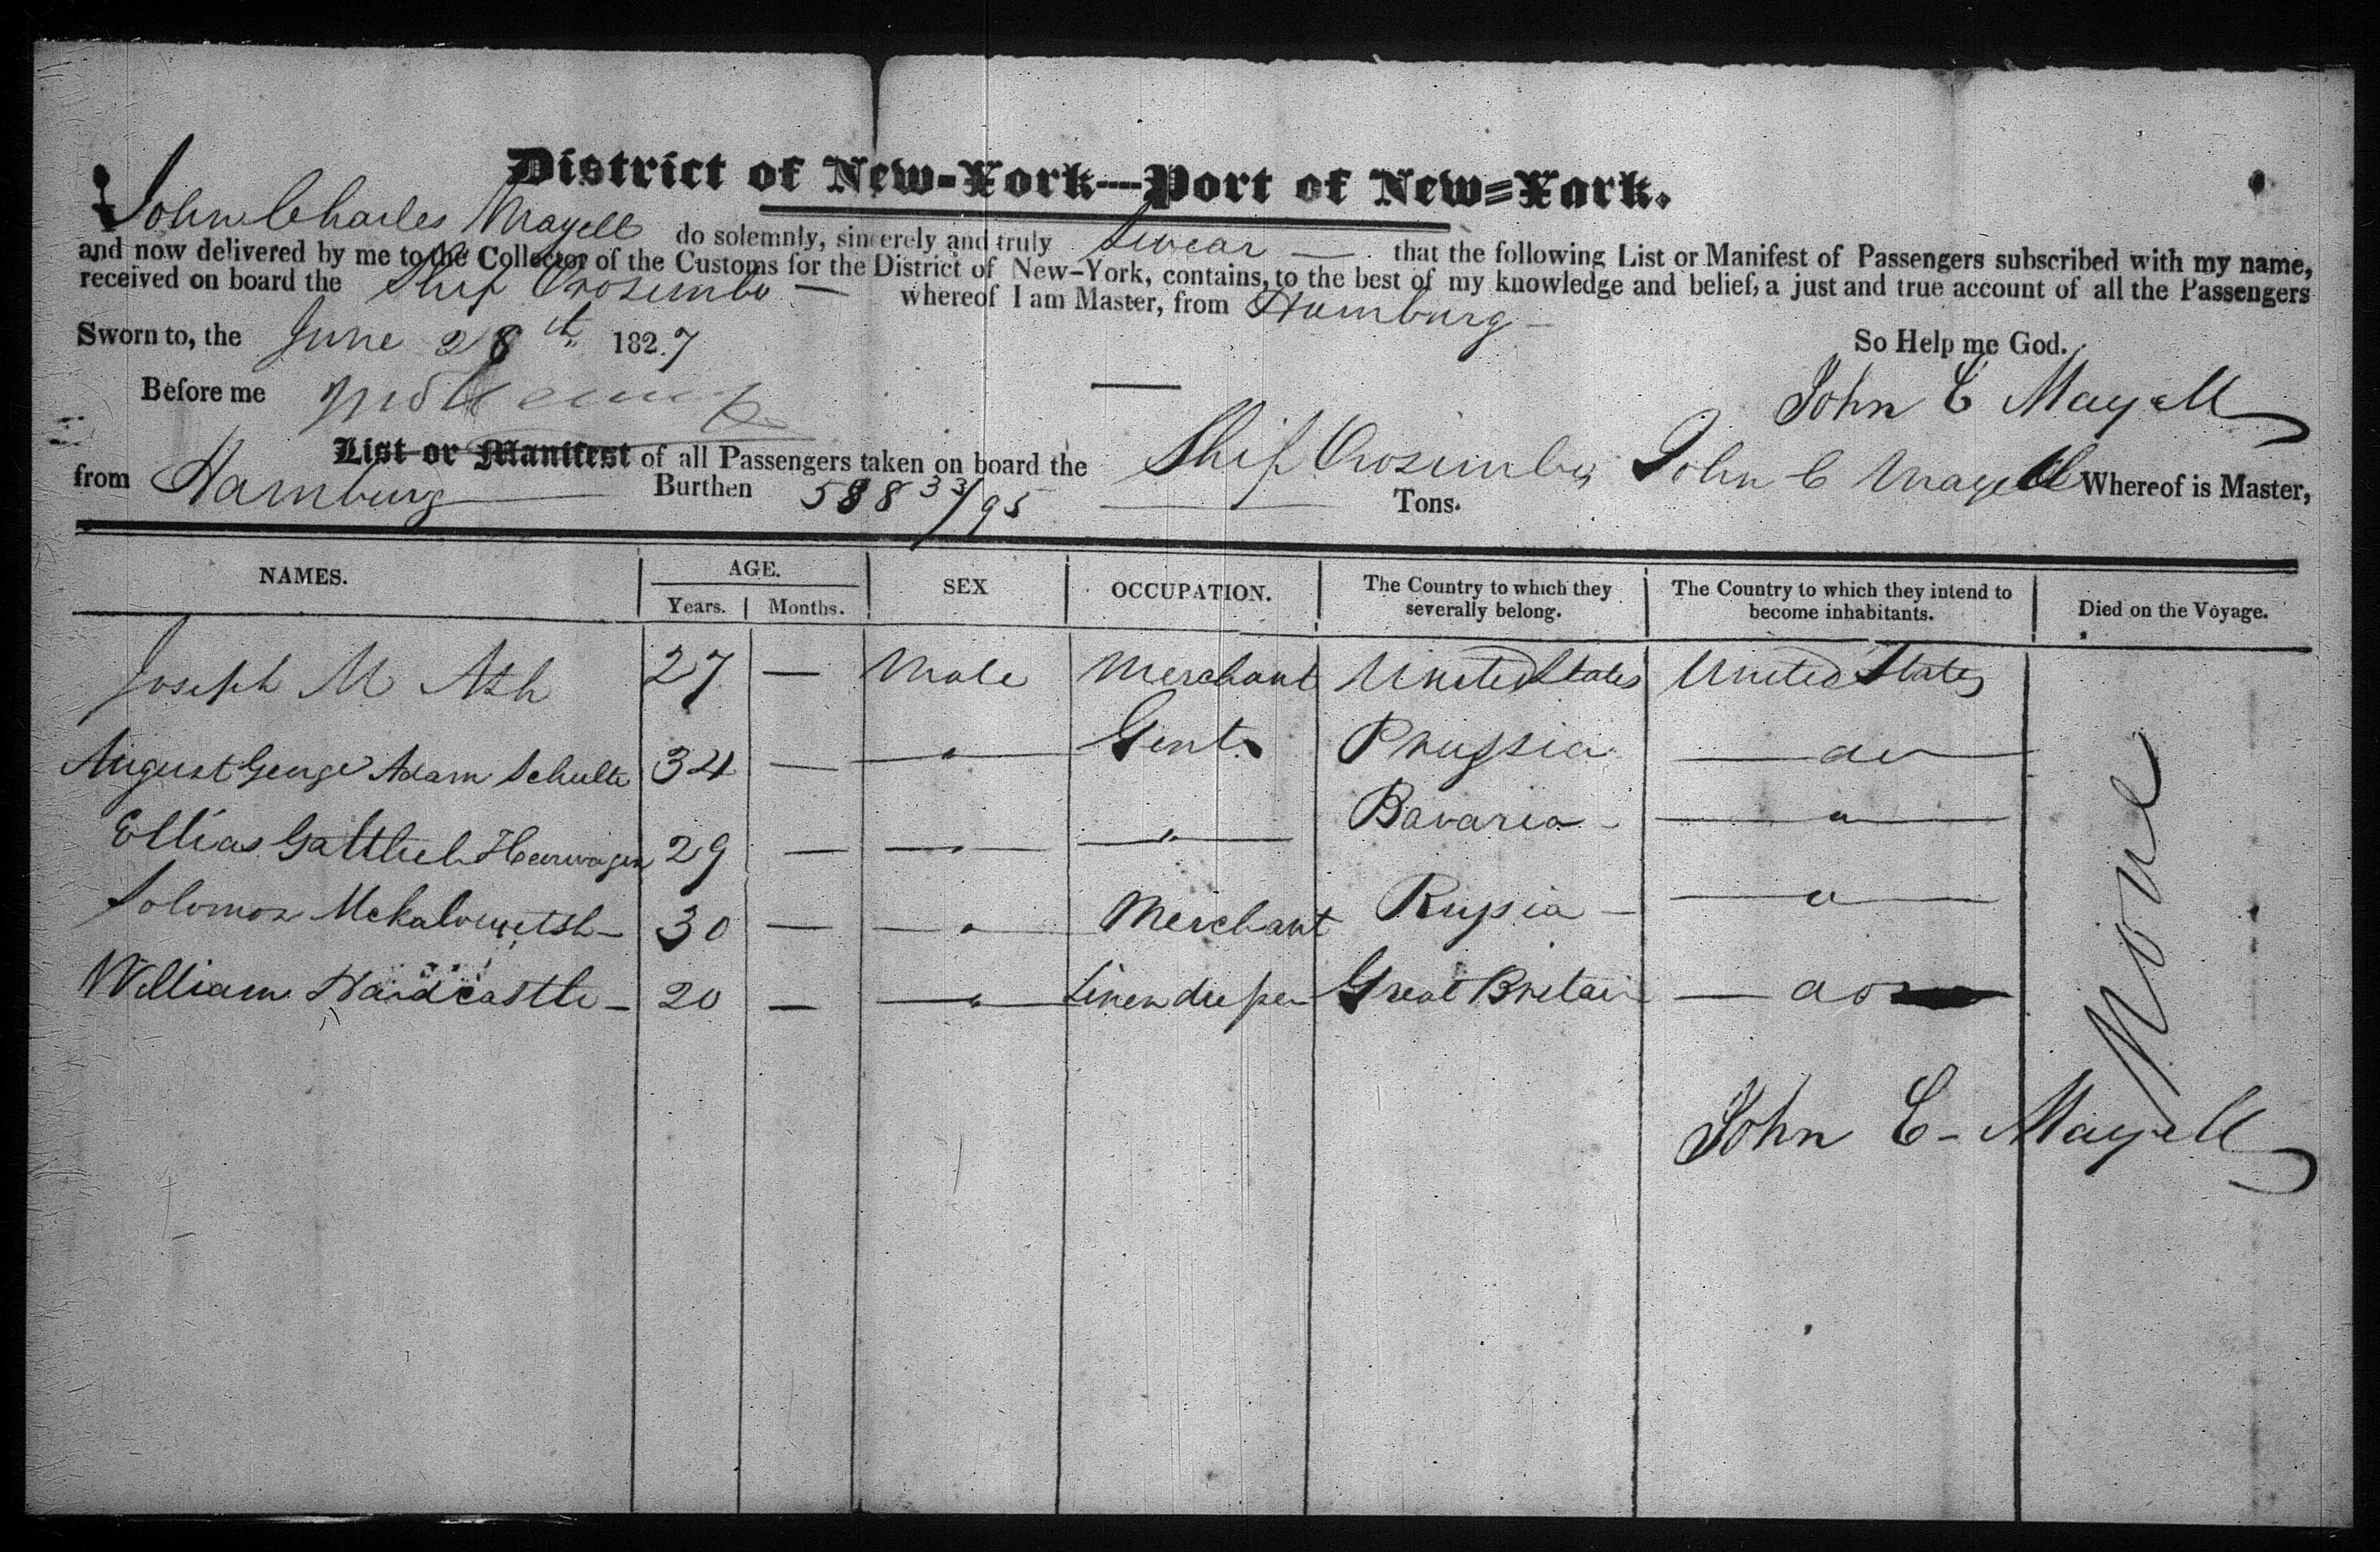 District of New-York—Port of New-York.
I John Charles Mayell do solemnly, sincerely and truly Swear — that the following List or Manifest of Passengers subscribed with my name,
and now delivered by me to the Collector of the Customs for the District of New-York, contains, to the best of my knowledge and belief, a just and true account of all the Passengers
received on board the Ship Orosimbo — whereof I am Master, from Hamburg —
Sworn to, the June 28th 1827 So Help me God.
Before me John C Mayell
List or Manifest of all Passengers taken on board the Ship Orosimbo, John C Mayell Whereof is Master,
from Hamburg Burthen 588 33/95 Tons.
NAMES. AGE. Years. Months. SEX OCCUPATION. The Country to which they severally belong. The Country to which they intend to become inhabitants. Died on the Voyage.
Joseph M Ash 27 — Male Merchant United States United States
August George Adam Schulte 34 — " Gent. Prussia do
Ellias Gottlieb Heerwagen 29 — " " Bavaria — "
Solomon 30 — " Merchant Russia — "
William Hardcastle — 20 — " Linen draper Great Britain — do
None
John C — Mayell